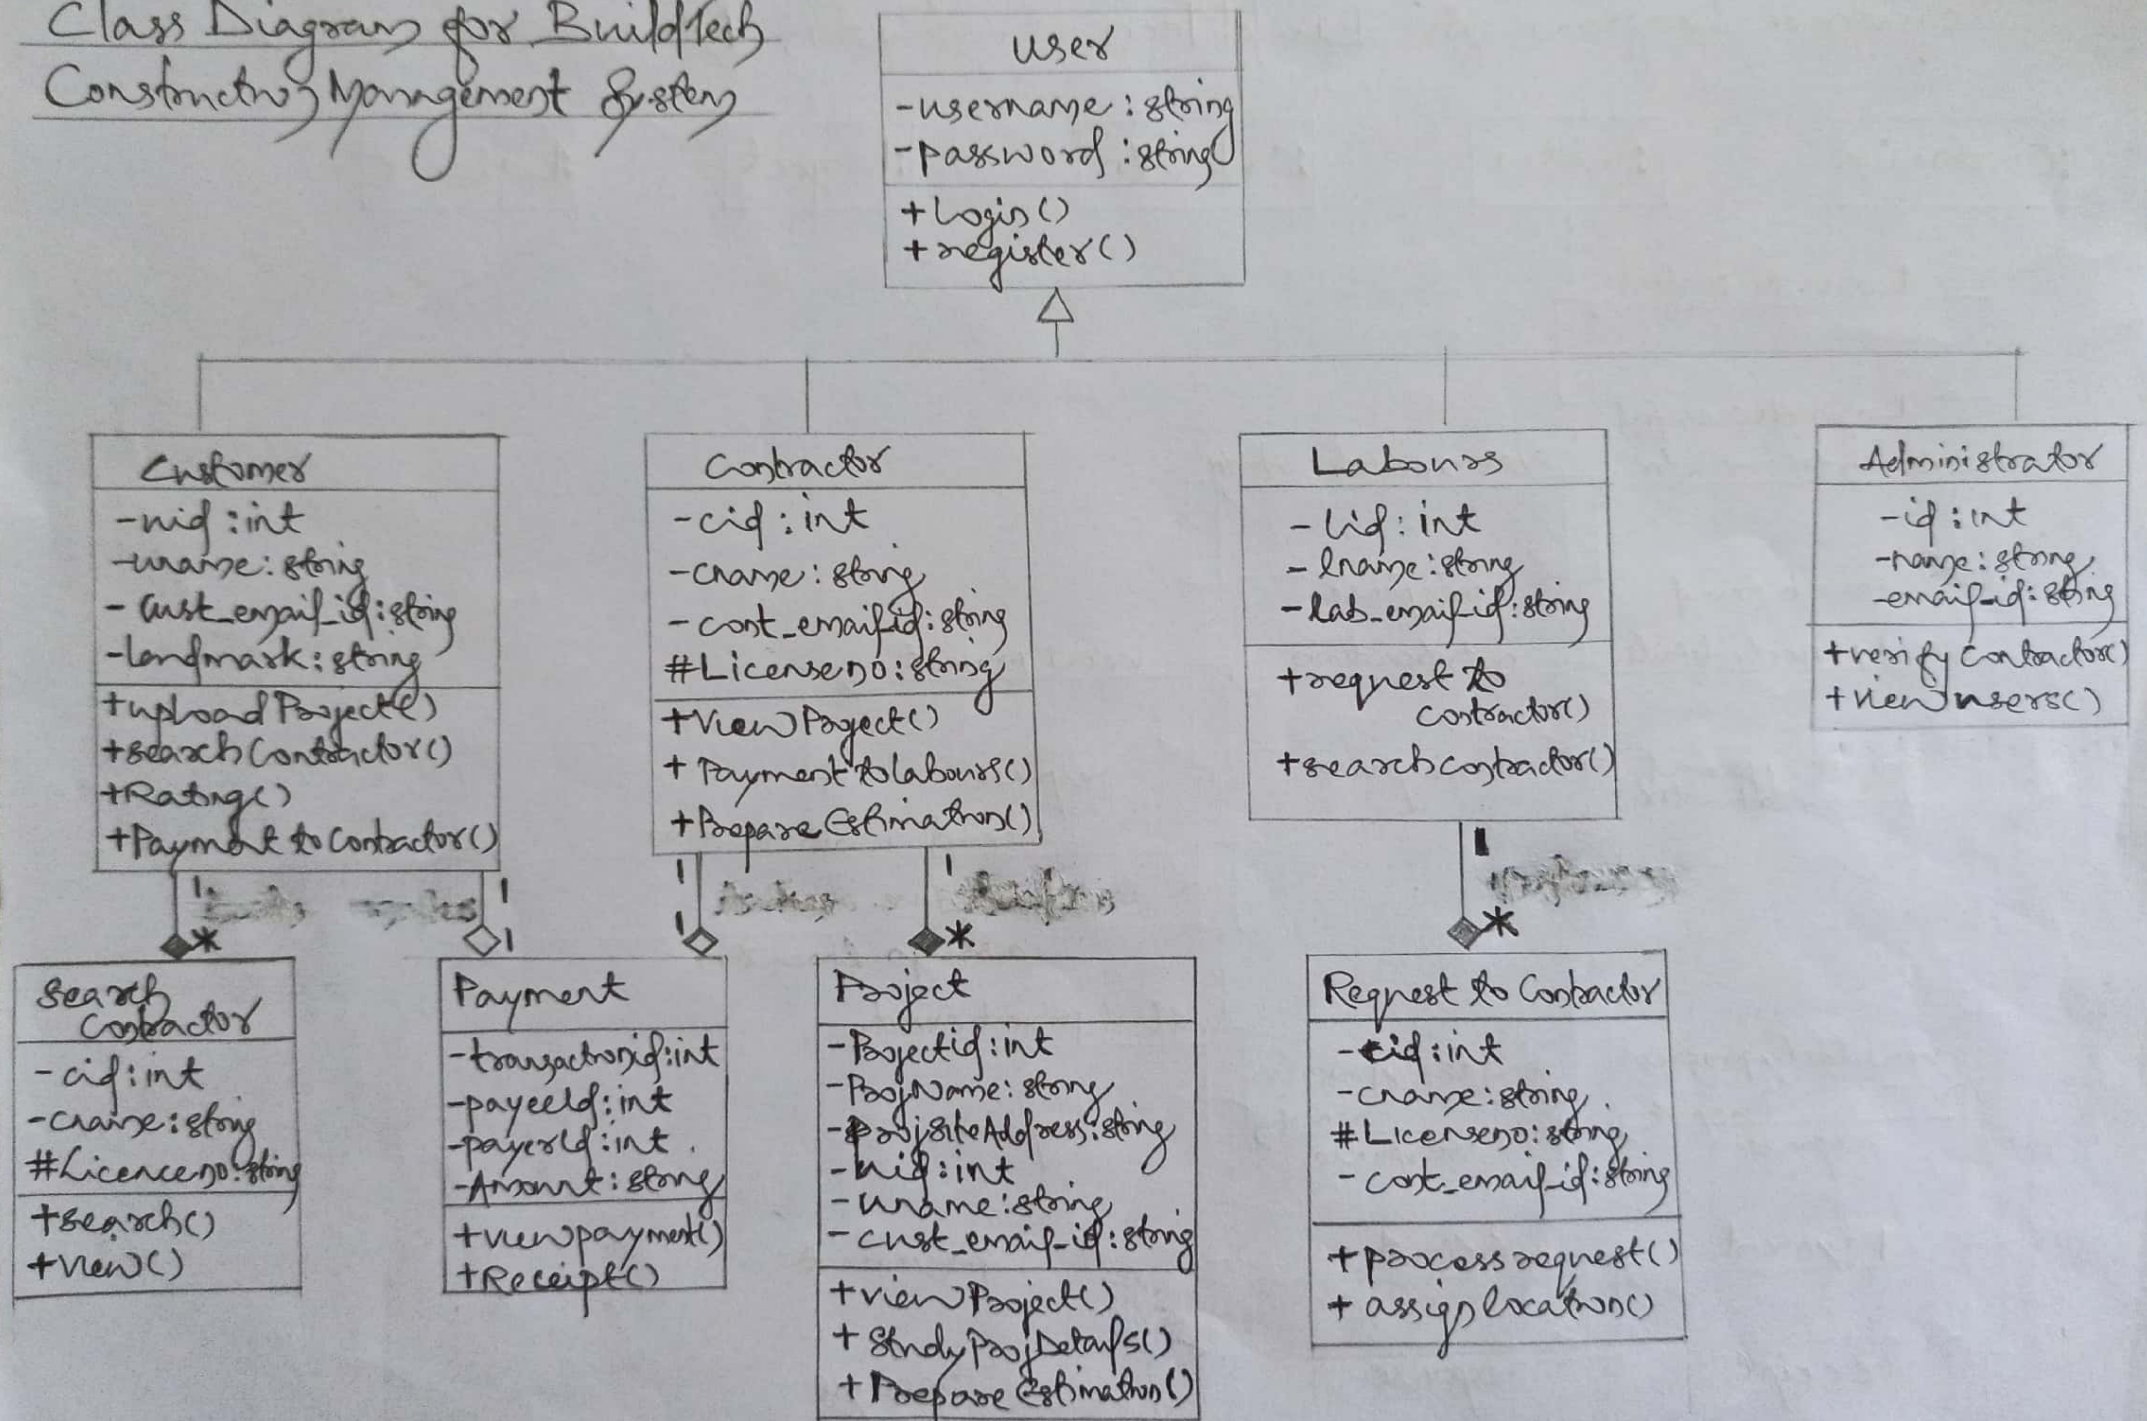 Class Diagram for BuildTech
Construction Management System
user
-username : string
-password : string
+Login()
+register()
Customer
-uid : int
-uname : string
-Cust_email_id : string
-landmark : string
+uploadProject()
+searchContractor()
+Rating()
+Payment to Contractor()
Contractor
-cid : int
-cname : string
-cont_email_id : string
#Licenseno : string
+ViewProject()
+Payment to Labours()
+Prepare Estimation()
Labours
-lid : int
-lname : string
-lab_email_id : string
+request to
contractor()
+searchcontractor()
Administrator
-id : int
-name : string
-email_id : string
+verify Contractor()
+viewusers()
1
1
1
1
1
*
1
1
*
*
Search
Contractor
-cid : int
-cname : string
#Licenceno : string
+search()
+view()
Payment
-transactionid : int
-payeeId : int
-payerId : int
-Amount : string
+viewpayment()
+Receipt()
Project
-Projectid : int
-ProjName : string
-projsiteAddress : string
-uid : int
-uname : string
-cust_email_id : string
+viewProject()
+StudyProjDetails()
+Prepare Estimation()
Request to Contractor
-cid : int
-cname : string
#Licenseno : string
-cont_email_id : string
+processrequest()
+assignlocation()